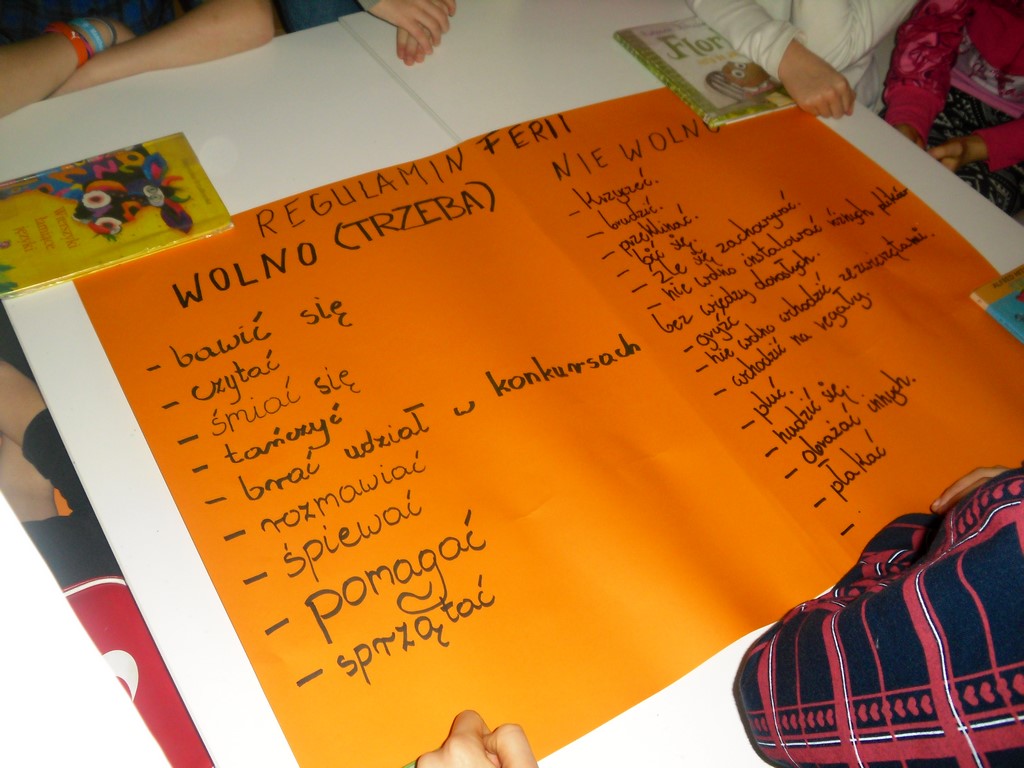 REGULAMIN FERII
WOLNO (TRZEBA)
- bawić się
- czytać
- śmiać się
- tańczyć
- brać udział w konkursach
- rozmawiać
- śpiewać
- pomagać
- sprzątać
NIE WOLNO
- Krzyczeć.
- brudzić.
- przeklinać.
- bić się.
- Źle się zachowywać.
- nie wolno instalować różnych plików
bez wiedzy dorosłych.
- gryźć
- nie wolno wchodzić ze zwierzętami.
- wchodzić na regały.
- pluć.
- nudzić się.
- obrażać innych.
- płakać
- .
Flor